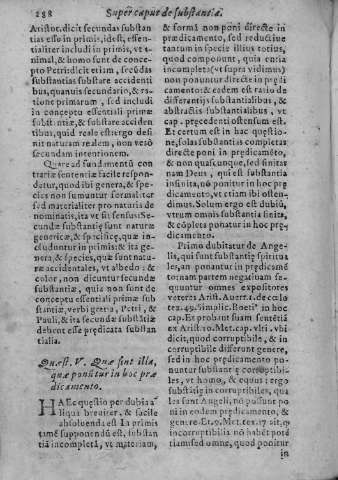 288 Super caput de substantia.
Aristot. dicit secundas substan
tias esse in primis, id est, essen-
tialiter includi in primis, vt a-
nimal, & homo sunt de conce-
ptu Petri: dicit etiam, secūdas
substantias substare accidenti
bus, quanuis secundario, & ra
tione primarum, sed includi
in conceptu essentiali primæ
substātiæ, & substare acciden
tibus, quid reale est: ergo desi-
nit naturam realem, non verò
secundam intentionem.
Quare ad fundamentū con
trariæ sententiæ facile respon-
datur, quod ibi genera, & spe-
cies non sumuntur formaliter
sed materialiter pro naturis de
nominatis, ita vt sit sensus: Se-
cundæ substantię sunt naturæ
genericæ, & specificę, quæ in-
cluduntur in primis: & ita ge-
nera, & species, quæ sunt natu-
ræ accidentales, vt albedo: &
color, non dicuntur secundæ
substantiæ, quia non sunt de
conceptu essentiali primæ sub
stantiæ, verbi gratia, Petri, &
Pauli, & ita secunda substātia
debent esse prędicata substan
tialia.
Quæst. V. Quæ sint illa,
quæ ponūtur in hoc præ
dicamento.
HAEc quęstio per dubia a-
liqua breuiter, & facile
absoluenda est: Ia primis
tamē supponendū est, substan
tiā incompletā, vt materiam,
& formā non poni directe in
prædicamēto, sed reductiue
tantum in specie illius totius,
quod componunt, quia entia
incompleta (vt supra vidimus)
non ponuntur directe in prędi
camento: & eadem est ratio de
differantijs substantialibus, &
abstractis substantialibus, vt
cap. pręcedenti ostensum est.
Et certum est in hac quęstio-
ne, solas substantias completas
directe poni in prędicamēto,
& non quascunque, sed finitas
nam Deus, qui est substantia
infinita, nō ponitur in hoc prę
dicamento, vt etiam ibi osten-
dimus. Solum ergo est dubiū,
vtrum omnis substantia finita,
& cōpleta ponatur in hoc prę-
dicamento.
Primo dubitatur de Ange-
lis, qui sunt substantię spiritua
les, an ponantur in prędicamē
to: nam partem negatiuam se-
quuntur omnes expositores
veteres Arist. Auerr. 1. de cœlo
tex. 49. Simplic. Boeti⁹ in hoc
cap. Et probant suam senentiā
ex Arist. 10. Met. cap. vlti. vbi
dicit, quod corruptibile, & in
corruptibile differunt genere,
sed in hoc prędicamento po-
nuntur substantię corruptibi-
les, vt homo, & equus: ergo
substātię incorruptibiles, qua
les sunt Angeli, nō possunt po
ni in eodem prędicamento, &
genere. Et 9. Met. tex. 17 ait, ꝙ
incorruptibilia nō habēt potē
tiam, sed omne, quod ponitur
in